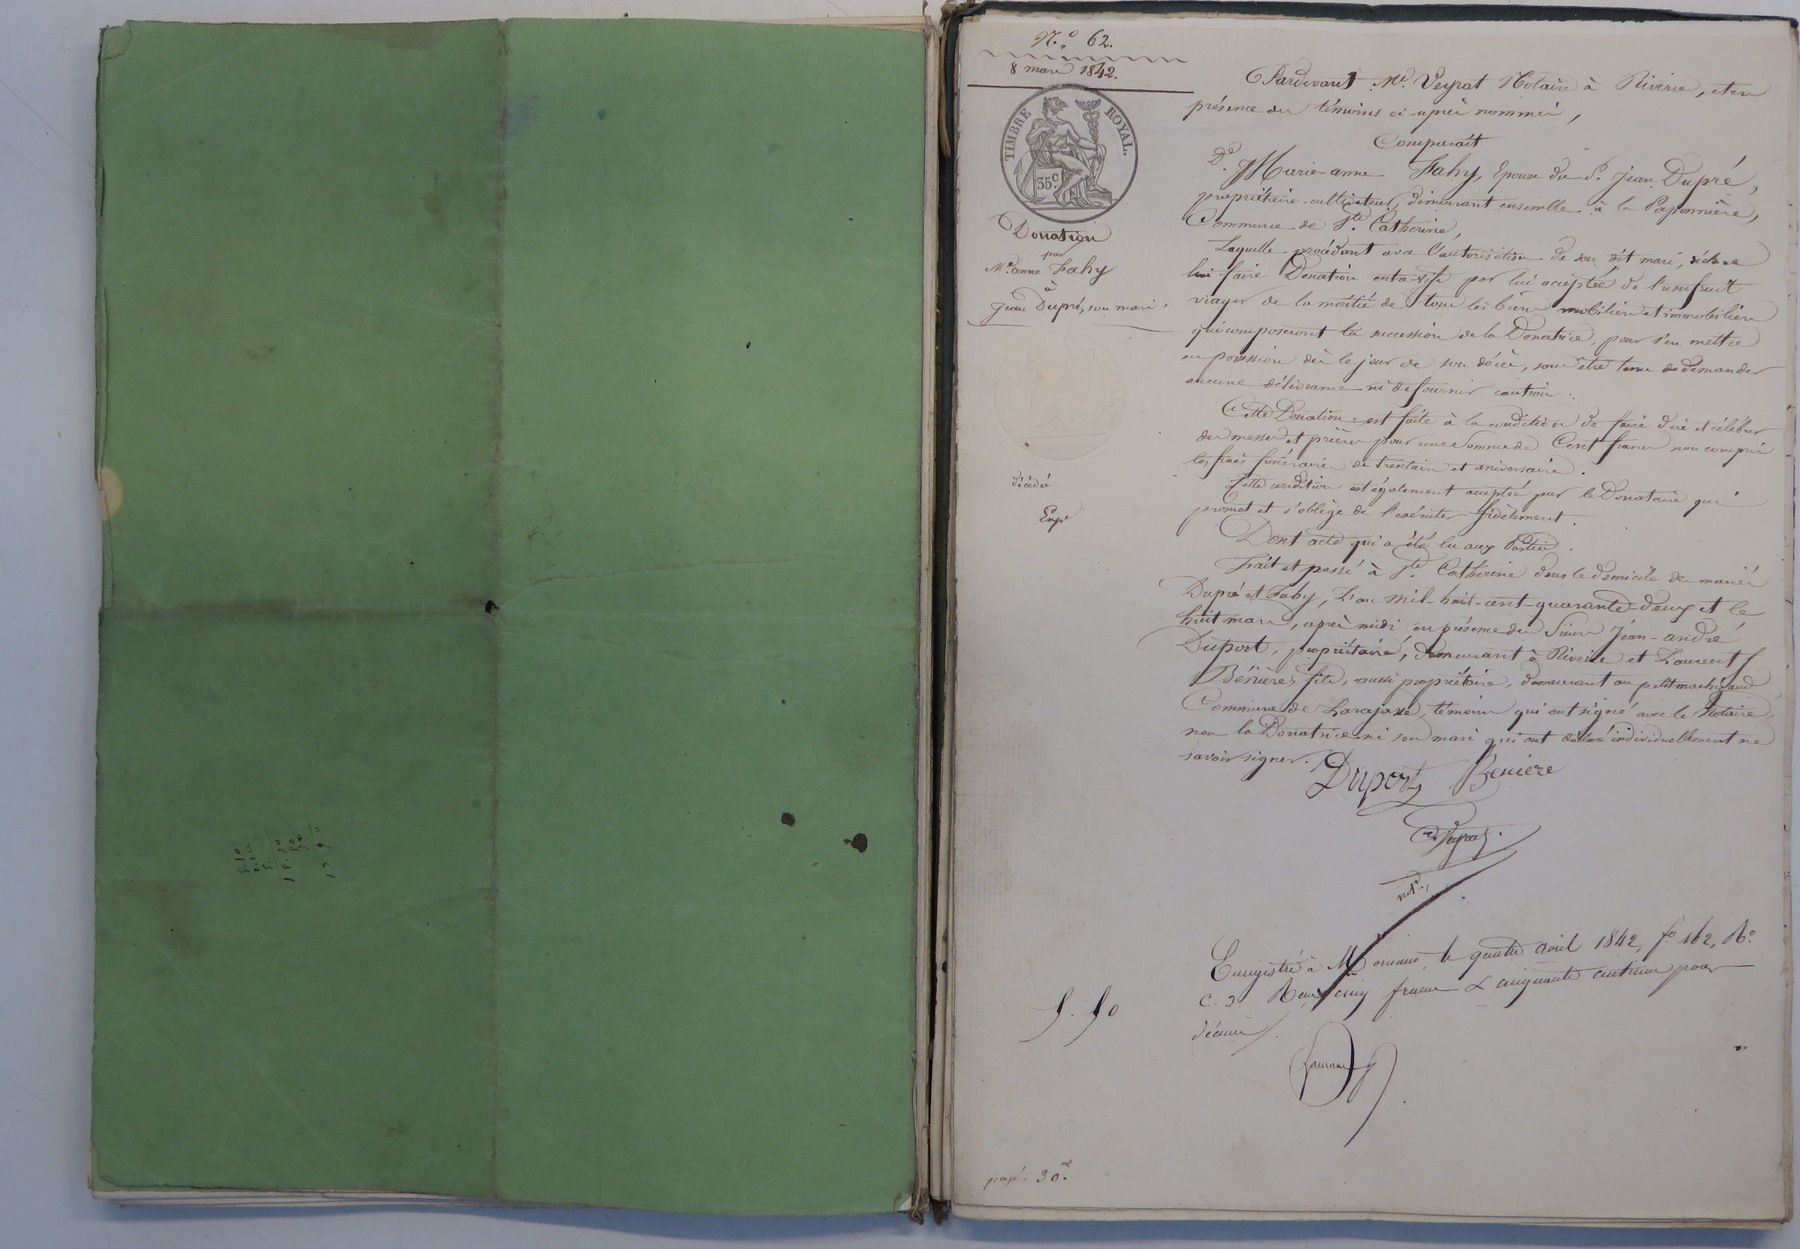 N.° 62.
8 mars 1842.
TIMBRE ROYAL.
35 c.
Donation
par
Me anne Fahy
à
Jean Dupré, son mari.
décédé
Enré
5. 50
payé 30c
Pardevant Me. Veyrat Notaire à Riverie, et en
présence des témoins ci-après nommés,
Comparait
De. Marie-anne Fahy, Epouse du Sr. Jean Dupré,
propriétaire-cultivateur, demeurant ensemble à la Paponnière,
Commune de Ste. Catherine,
Laquelle procédant avec l'autorisation de son dit mari, déclare
lui faire Donation entre-vifs par lui acceptée de l'usufruit
viager de la moitié de tous les biens mobiliers et immobiliers
qui composeront la succession de la Donatrice, pour s'en mettre
en possession dès le jour de son décès, sans être tenu de demander
aucune délivrance ni de fournir caution.
Cette Donation est faite à la condition de faire dire et célébrer
des messes et prières pour une Somme de Cent francs non compris
les frais funéraires de trentain et aniversaire.
Cette condition est également acceptée par le Donataire qui
promet et s'oblige de l'exécuter fidèlement.
Dont acte qui a été lu aux Parties.
Fait et passé à Ste. Catherine dans le domicile des mariés
Dupré et Fahy, L'an mil-huit-cent-quarante-deux et le
huit mars, après midi en présence des Sieurs Jean-andré
Duport, propriétaire, demeurant à Riverie et Laurent
Bénière fils, aussi propriétaire, demeurant au petit
Commune de Larajasse, témoins qui ont signé avec le Notaire,
non la Donatrice ni son mari qui ont déclaré individuellement ne
savoir signer.
Duport Beniere
Veyrat
notre
Enregistré à Mornant le quatre avril 1842, fo 162, Ro.
C. 3. Reçu cinq francs & cinquante centimes pour
décime